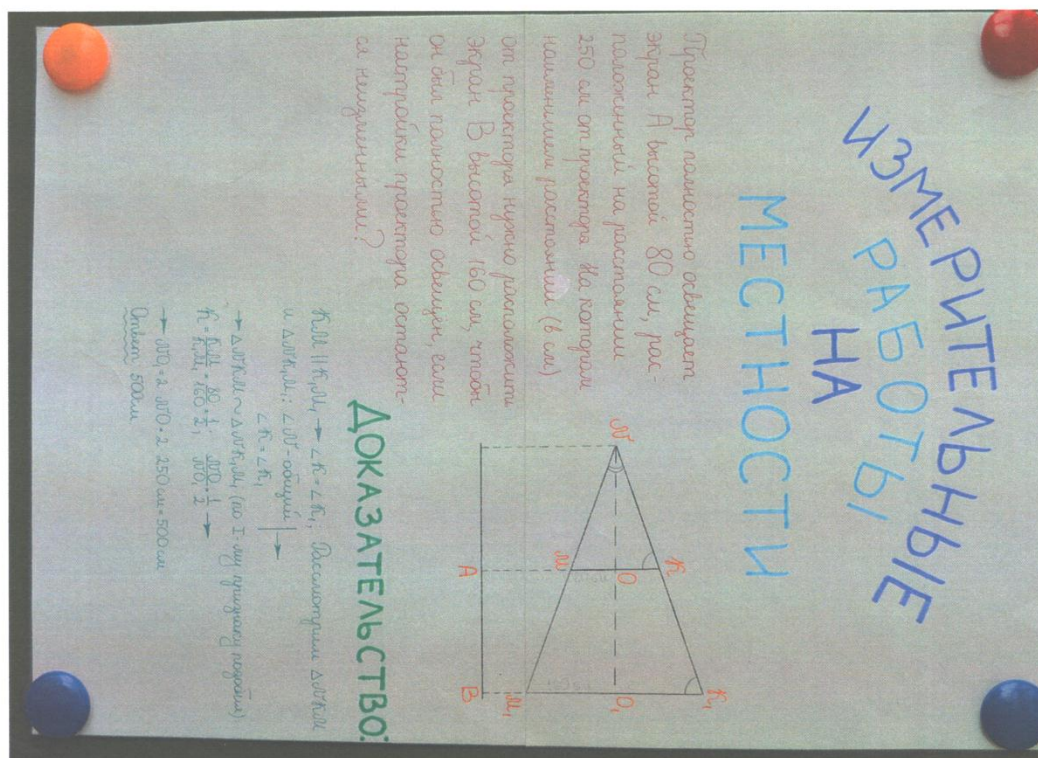 ИЗМЕРИТЕЛЬНЫЕ
РАБОТЫ
НА
МЕСТНОСТИ
Проектор полностью освещает
экран А высотой 80 см, рас-
положенный на расстоянии
250 см от проектора. На котором
наименьшем расстоянии (в см)
от проектора нужно расположить
экран В высотой 160 см, чтобы
он был полностью освещен, если
настройки проектора остают-
ся неизменными?
N
M
O
K
M₁
O₁
K₁
A
B
ДОКАЗАТЕЛЬСТВО:
KM || K₁M₁ → ∠K = ∠K₁; Рассмотрим ΔNKM
и ΔNK₁M₁: ∠N - общий
∠K = ∠K₁ | →
→ ΔNKM ~ ΔNK₁M₁ (по I-му признаку подобия)
K = KM/K₁M₁ = 80/160 = 1/2; NO/NO₁ = 1/2 →
→ NO₁ = 2 NO = 2 · 250 см = 500 см
Ответ: 500см